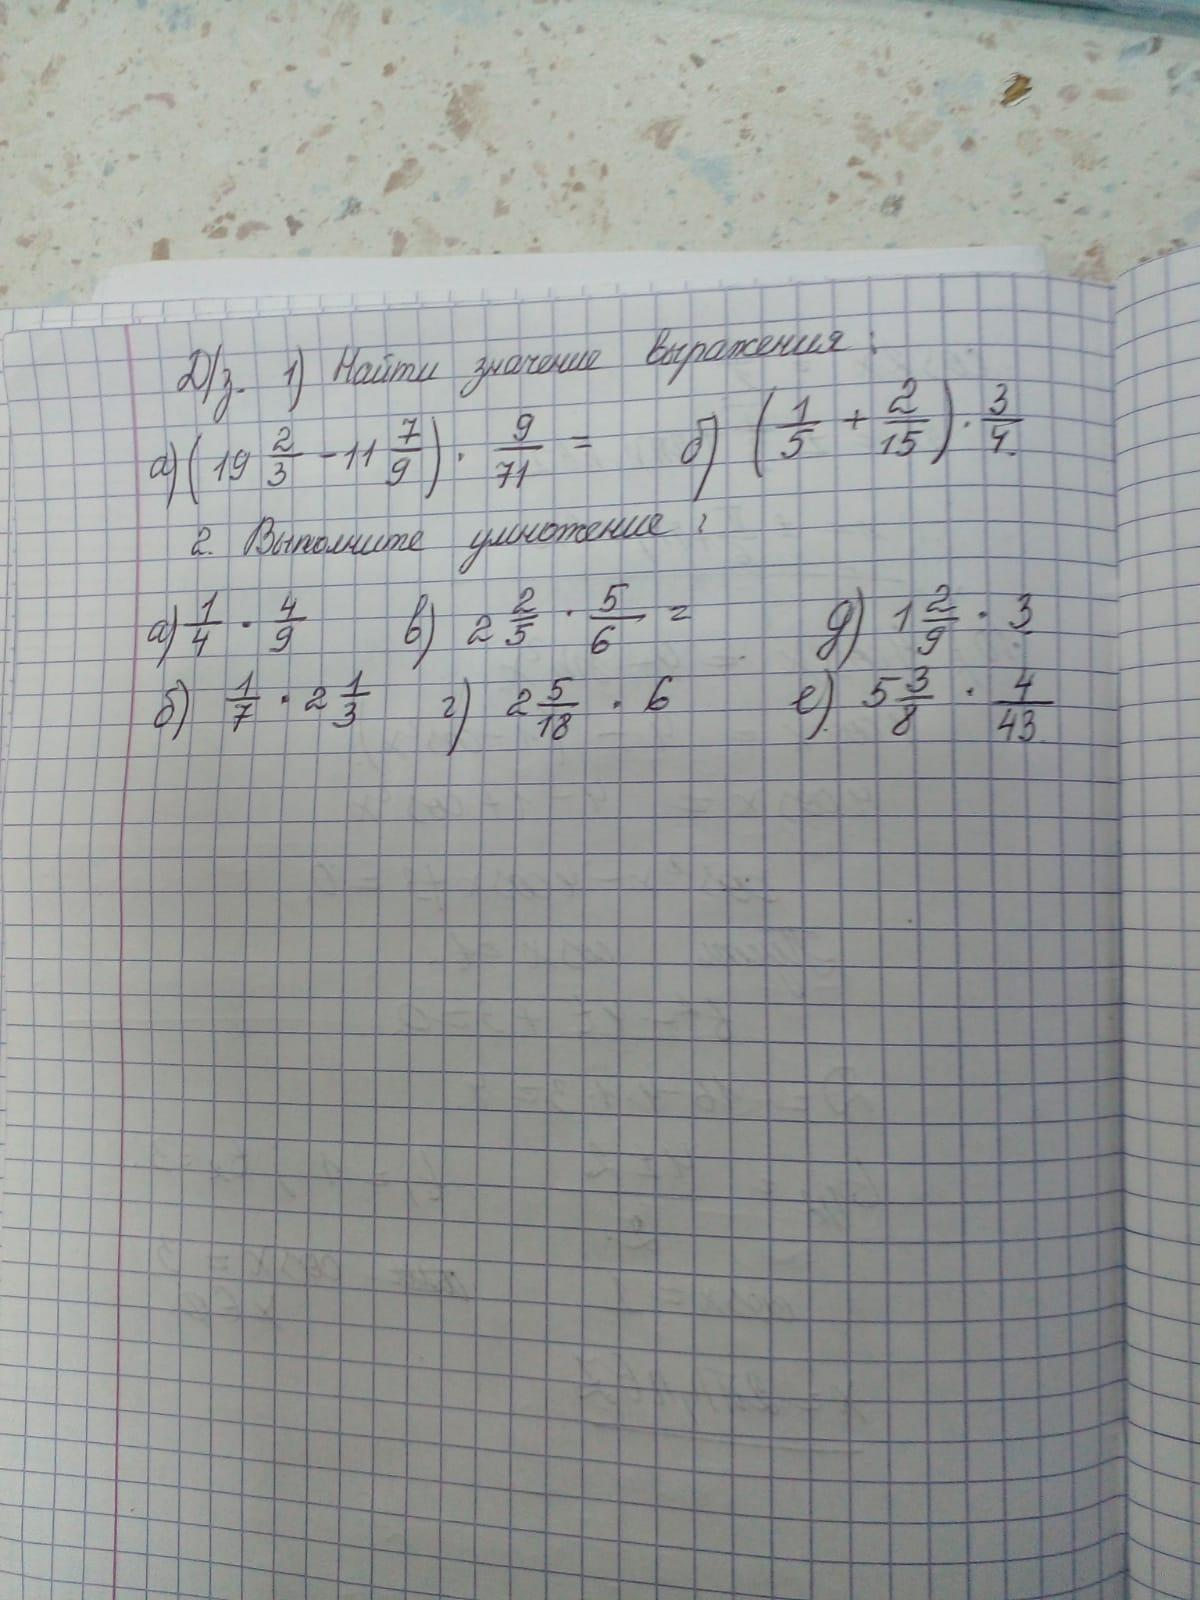 Д/з. 1) Найти значение выражения:
а) (19 2/3 - 11 7/9) · 9/71 = б) (1/5 + 2/15) · 3/4
2. Выполните умножение:
а) 1/4 · 4/9 в) 2 2/5 · 5/6 = д) 1 2/9 · 3
б) 1/7 · 2 1/3 г) 2 5/18 · 6 е) 5 3/8 · 4/43